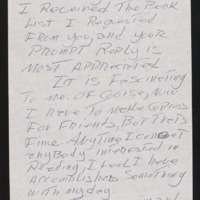 I Received The Book
List I Requested
From you, and your
Prompt Reply is
Most Appreciated
It is Fascinating
To me. Of Course, Now
I Have To Make Copies
For Friends, But that's
Fine. Anytime I can get
anybody interested in
Reading, I feel I have
Accomplished something
with my day